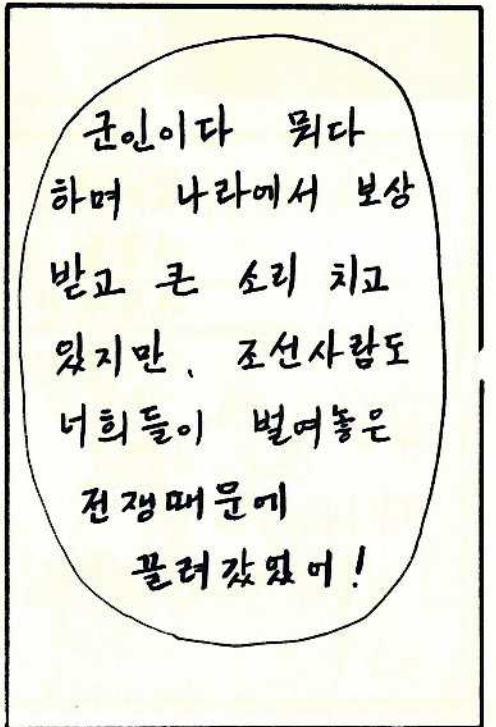 군인이다 뭐다
하며 나라에서 보상
받고 큰 소리 치고
있지만, 조선사람도
너희들이 벌여놓은
전쟁때문에
끌려갔었어!